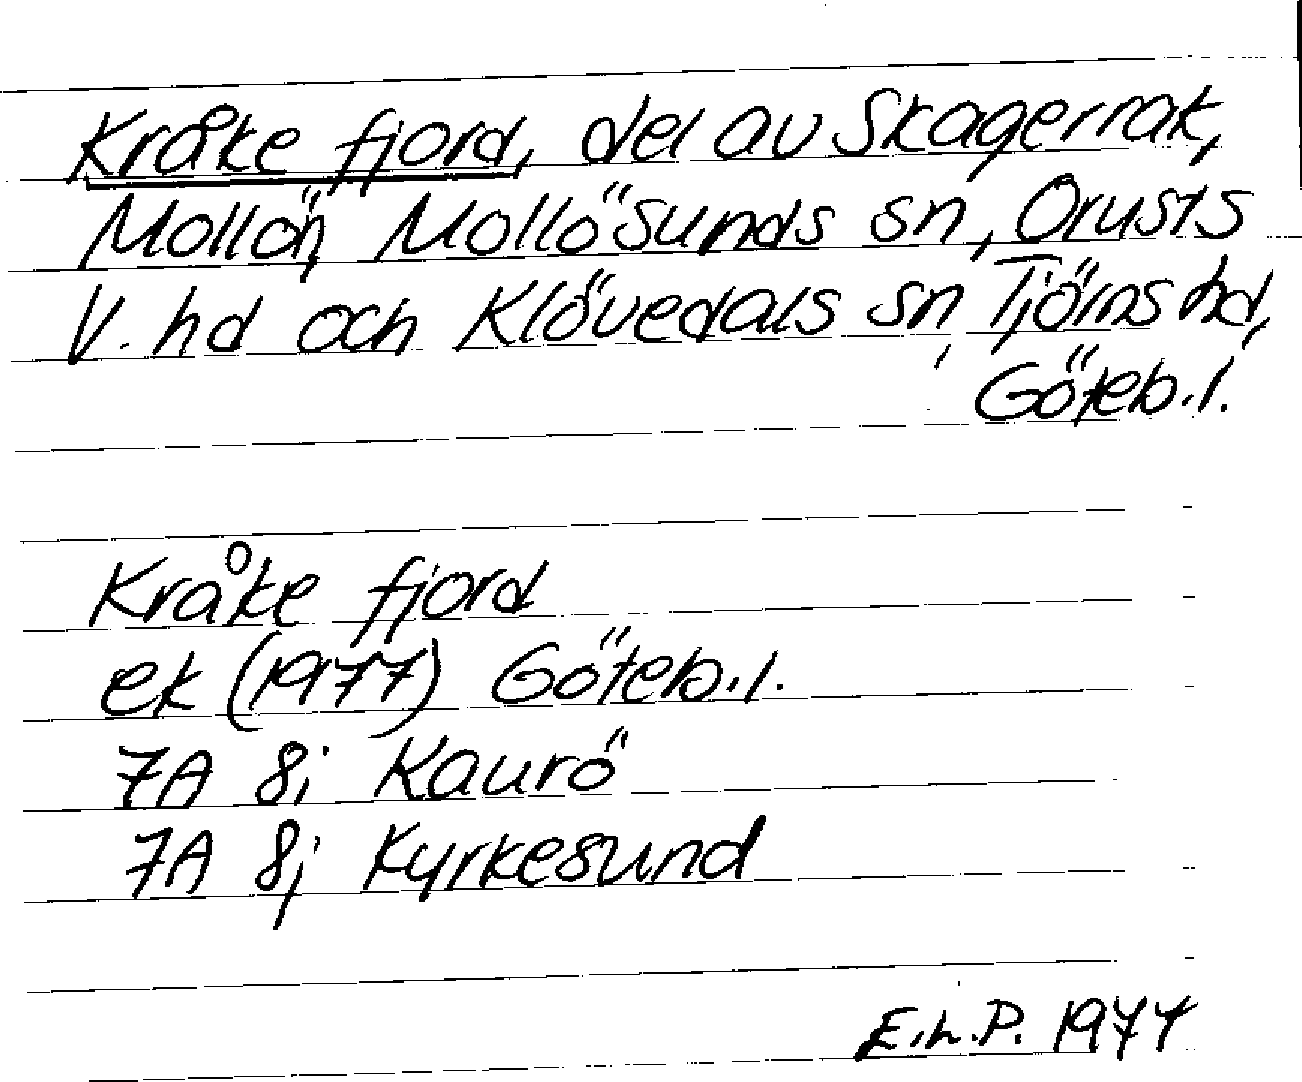 Kråke fjord, del av Skagerrak,
Mollön, Mollösunds sn, Orusts
V. hd och Klövedals sn, Tjörns hd,
Göteb. l.
Kråke fjord
ek (1977) Göteb. l.
7A 8i Kaurö
7A 8j Kyrkesund
E.L.P. 1977